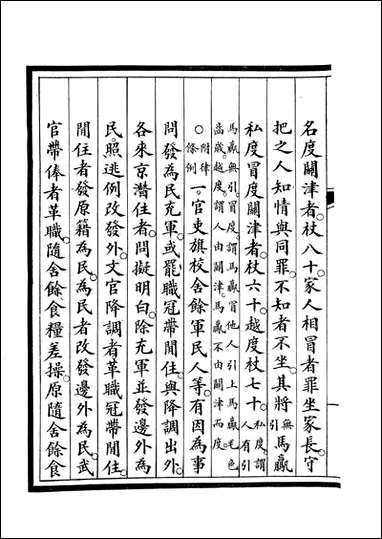 名度關津者。杖八十。家人相冒者。罪坐家長。守
把之人知情與同罪。不知者不坐。其將無引馬騾
私度冒度關津者。杖六十。越度杖七十。私度謂人有引
馬騾無引冒度謂馬騾冒他人引上馬騾毛色
齒歲。越度謂人由關津馬騾不由關津而度。
○附律條例 一。官吏旗校舍餘軍民人等。有因為事
問發為民充軍。或罷職冠帶閒住。與降調出外。
各來京潛住者。問擬明白。除充軍並發邊外為
民。照逃例改發外。文官降調者革職冠帶閒住。
閒住者發原籍為民。為民者改發邊外為民。武
官帶俸者革職。隨舍餘食糧差操。原隨舍餘食